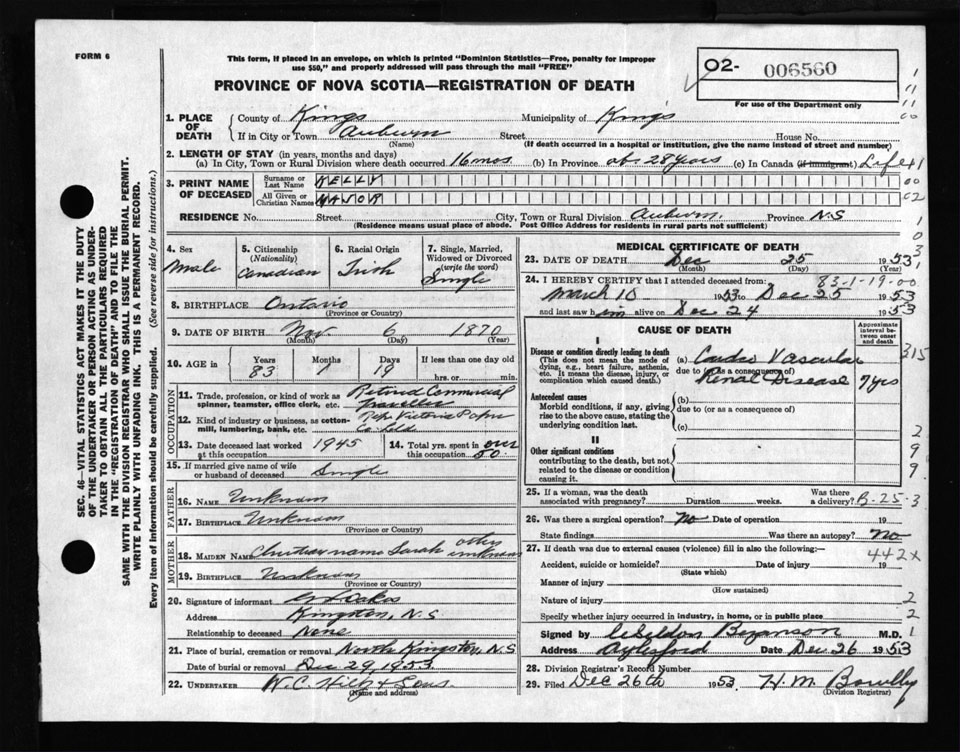 FORM 6
This form, if placed in an envelope, on which is printed "Dominion Statistics—Free, penalty for improper
use $50," and properly addressed will pass through the mail "FREE"
O2- 006560
For use of the Department only
PROVINCE OF NOVA SCOTIA—REGISTRATION OF DEATH
SEC. 46—VITAL STATISTICS ACT MAKES IT THE DUTY
OF THE UNDERTAKER OR PERSON ACTING AS UNDER-
TAKER TO OBTAIN ALL THE PARTICULARS REQUIRED
IN THE "REGISTRATION OF DEATH" AND TO FILE THE
SAME WITH THE DIVISION REGISTRAR WHO SHALL ISSUE THE BURIAL PERMIT.
WRITE PLAINLY WITH UNFADING INK. THIS IS A PERMANENT RECORD.
Every item of information should be carefully supplied. (See reverse side for instructions.)
1. PLACE OF DEATH
County of Kings Municipality of Kings
If in City or Town Auburn Street House No.
(Name) (If death occurred in a hospital or institution, give the name instead of street and number)
2. LENGTH OF STAY (in years, months and days)
(a) In City, Town or Rural Division where death occurred 16 mos. (b) In Province abt 28 years (c) In Canada (if immigrant) Life
3. PRINT NAME OF DECEASED
Surname or Last Name KELLY
All Given or Christian Names MAJOR
RESIDENCE No. Street City, Town or Rural Division Auburn. Province N.S
(Residence means usual place of abode. Post Office Address for residents in rural parts not sufficient)
4. Sex Male
5. Citizenship (Nationality) Canadian
6. Racial Origin Irish
7. Single, Married, Widowed or Divorced (write the word) Single
8. BIRTHPLACE Ontario
(Province or Country)
9. DATE OF BIRTH Nov 6 1870
(Month) (Day) (Year)
10. AGE in Years 83 Months 1 Days 19 If less than one day old
hrs. or min.
OCCUPATION
11. Trade, profession, or kind of work as spinner, teamster, office clerk, etc. Retired Commercial traveller
12. Kind of industry or business, as cotton-mill, lumbering, bank, etc. Victoria Paper Co Ltd
13. Date deceased last worked at this occupation 1945
14. Total yrs. spent in this occupation over 50.
15. If married give name of wife or husband of deceased Single
FATHER
16. NAME Unknown
17. BIRTHPLACE Unknown
(Province or Country)
MOTHER
18. MAIDEN NAME Christian name Sarah other unknown
19. BIRTHPLACE Unknown
(Province or Country)
20. Signature of informant
Address Kingston, N.S
Relationship to deceased None
21. Place of burial, cremation or removal North Kingston, N.S
Date of burial or removal Dec 29, 1953.
22. UNDERTAKER W.C. Hiltz & Sons.
(Name and address)
MEDICAL CERTIFICATE OF DEATH
23. DATE OF DEATH Dec 25 1953
(Month) (Day) (Year)
24. I HEREBY CERTIFY that I attended deceased from: 83-1-19-00
March 10 1953 to Dec 25 1953
and last saw him alive on Dec 24 1953
CAUSE OF DEATH
Approximate interval between onset and death
I
Disease or condition directly leading to death
(This does not mean the mode of dying, e.g., heart failure, asthenia, etc. It means the disease, injury, or complication which caused death.)
(a) Cardio Vascular
due to (or as a consequence of)
Renal Disease 7 yrs
Antecedent causes
Morbid conditions, if any, giving rise to the above cause, stating the underlying condition last.
(b)
due to (or as a consequence of)
(c)
II
Other significant conditions
contributing to the death, but not related to the disease or condition causing it.
25. If a woman, was the death associated with pregnancy? Duration weeks. Was there a delivery? B-25-3
26. Was there a surgical operation? No Date of operation 19
State findings Was there an autopsy? No
27. If death was due to external causes (violence) fill in also the following:— 442x
Accident, suicide or homicide? Date of injury 19
(State which)
Manner of injury
(How sustained)
Nature of injury
Specify whether injury occurred in industry, in home, or in public place
Signed by Bezanson M.D.
Address Aylesford Date Dec 26 1953
28. Division Registrar's Record Number
29. Filed Dec 26th 1953 H.M.
(Division Registrar)